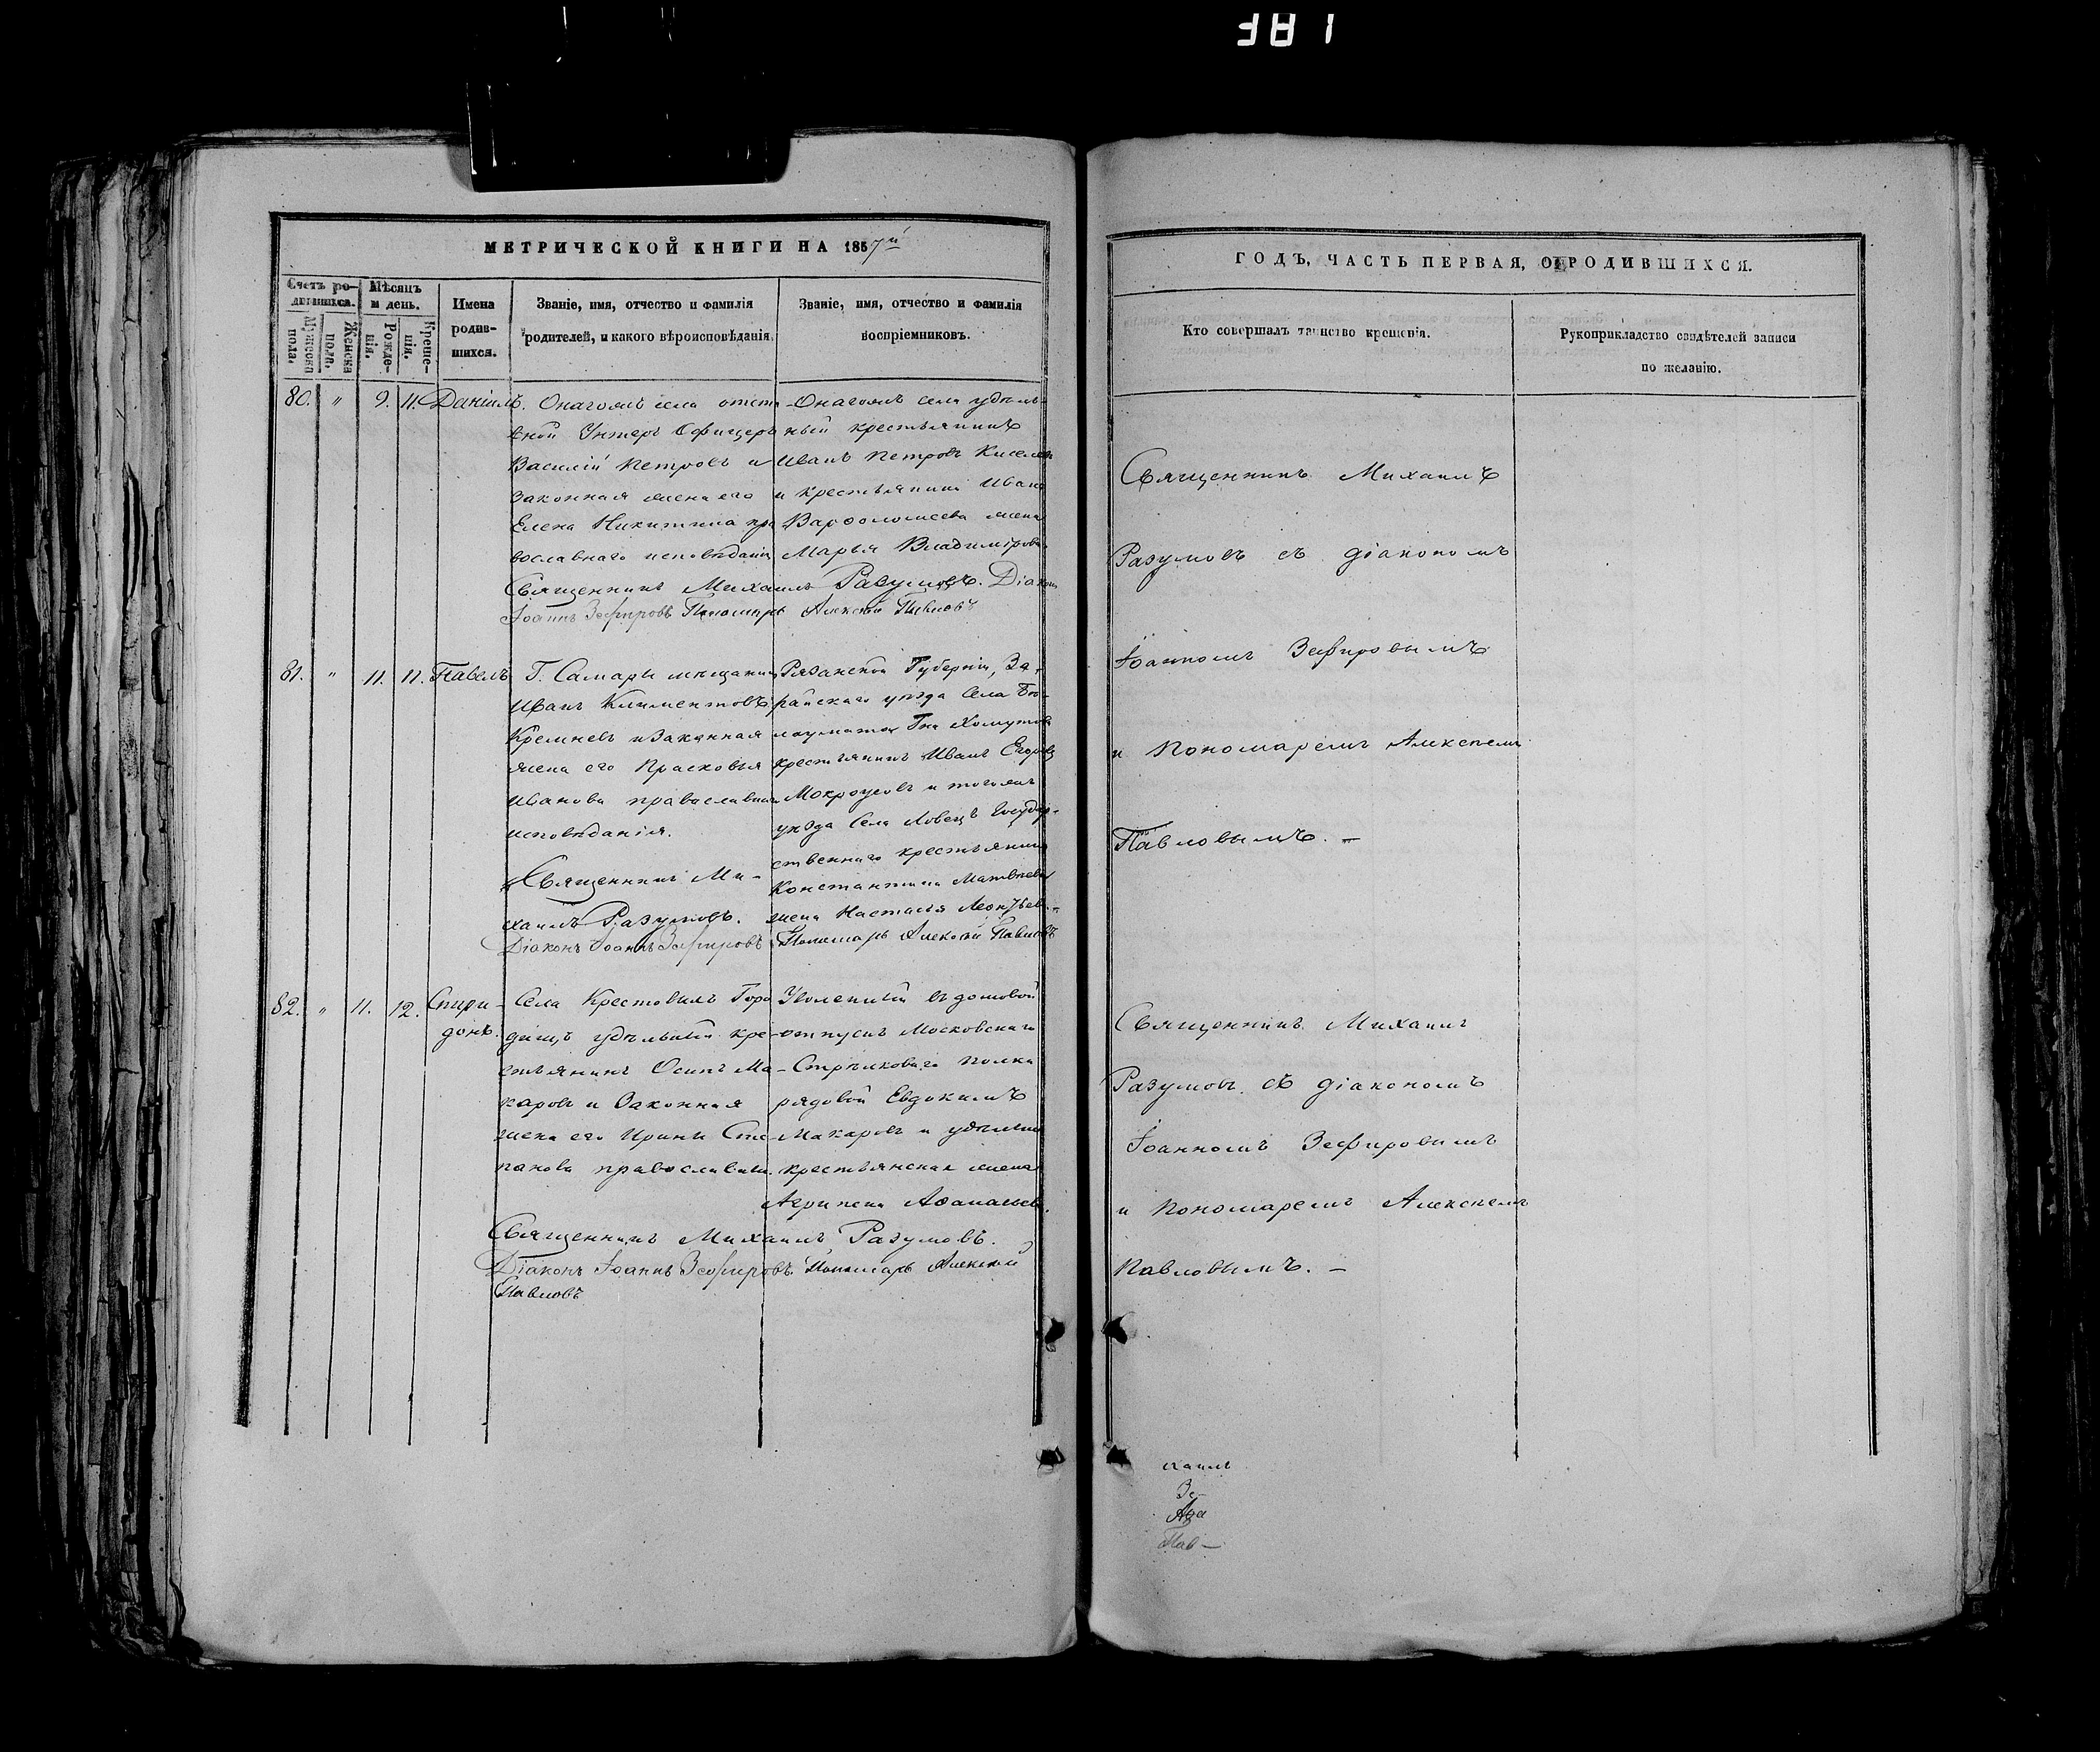 381
МЕТРИЧЕСКОЙ КНИГИ НА 1857й
Счетъ родившихся.
Мѣсяцъ и день.
Имена родившихся.
Званіе, имя, отчество и фамилія родителей, и какого вѣроисповѣданія.
Званіе, имя, отчество и фамилія воспріемниковъ.
Мужеска пола.
Женска пола.
Рожденія.
Крещенія.
80. " 9. 11. Даніилъ.
Онагожъ села отста-
вной Унтеръ Офицеръ
Василій Петровъ и
законная жена его
Елена Никитина пра
вославнаго исповѣданія
Онагожъ села удѣль-
ный крестьянинъ
Иванъ Петровъ Киселевъ
и крестьянина Ивана
Варѳоломеева жена
Марья Владимірова.
Священникъ Михаилъ Разумовъ. Діаконъ
Іоаннъ Зефировъ Пономарь Алексѣй Павловъ
81. " 11. 11. Павелъ
Г. Самары мѣщанинъ
Иванъ Климентовъ
Кремневъ и Законная
жена его Прасковья
Иванова православнаго
исповѣданія.
Рязанской Губерніи, За-
райскаго уѣзда Села
Гна Хомутова
крестьянинъ Иванъ Егоровъ
Мокроусовъ и тогожъ
уѣзда Села Ловецъ Государ-
ственнаго крестьянина
Константина Матвѣева
жена Настасья Леонтьева.
Священникъ Ми-
хаилъ Разумовъ.
Діаконъ Іоаннъ Зефировъ Пономарь Алексѣй Павловъ
82. " 11. 12. Спири-
донъ.
Села Крестовыхъ Горо
дищъ удѣльный кре-
стьянинъ Осипъ Ма-
каровъ и Законная
жена его Ирина Сте
панова православн.
Уволенный въ домовой
отпускъ Московскаго
Стрѣлковаго полка
рядовой Евдокимъ
Макаровъ и удѣльная
крестьянская жена
Агрипена Аѳанасьева.
Священникъ Михаилъ Разумовъ.
Діаконъ Іоаннъ Зефировъ. Пономарь Алексѣй
Павловъ
ГОДЪ, ЧАСТЬ ПЕРВАЯ, О РОДИВШИХСЯ.
Кто совершалъ таинство крещенія.
Рукоприкладство свидѣтелей записи
по желанію.
Священникъ Михаилъ
Разумовъ съ діакономъ
Іоанномъ Зефировымъ
и Пономаремъ Алексѣемъ
Павловымъ. —
Священникъ Михаилъ
Разумовъ съ діакономъ
Іоанномъ Зефировымъ
и Пономаремъ Алексѣемъ
Павловымъ. —
хаилъ
Зе-
Пав-